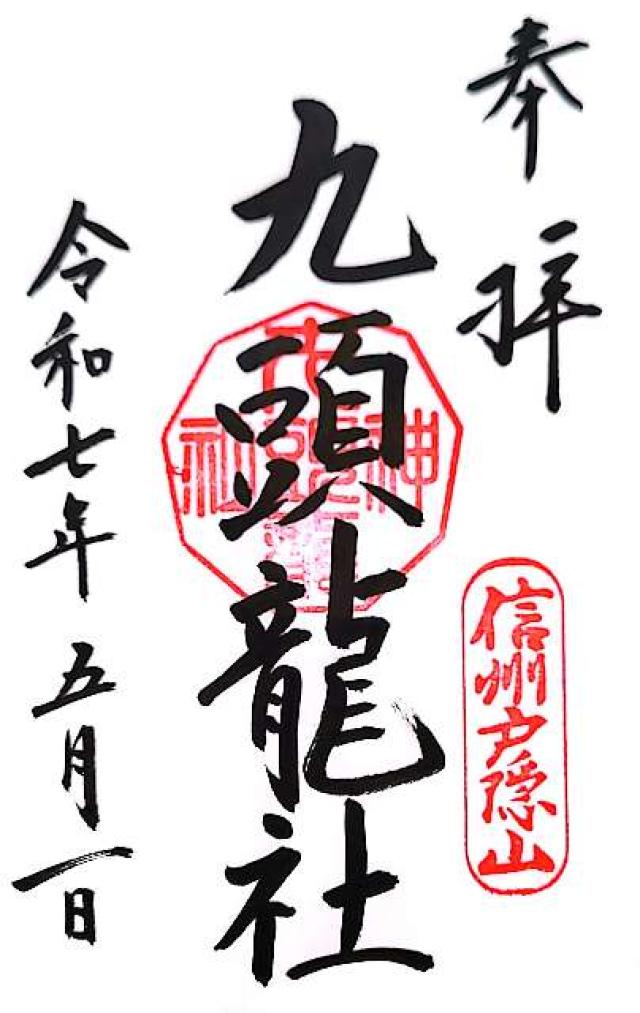 奉拝
信州戸隠山
九頭龍社
令和七年五月一日